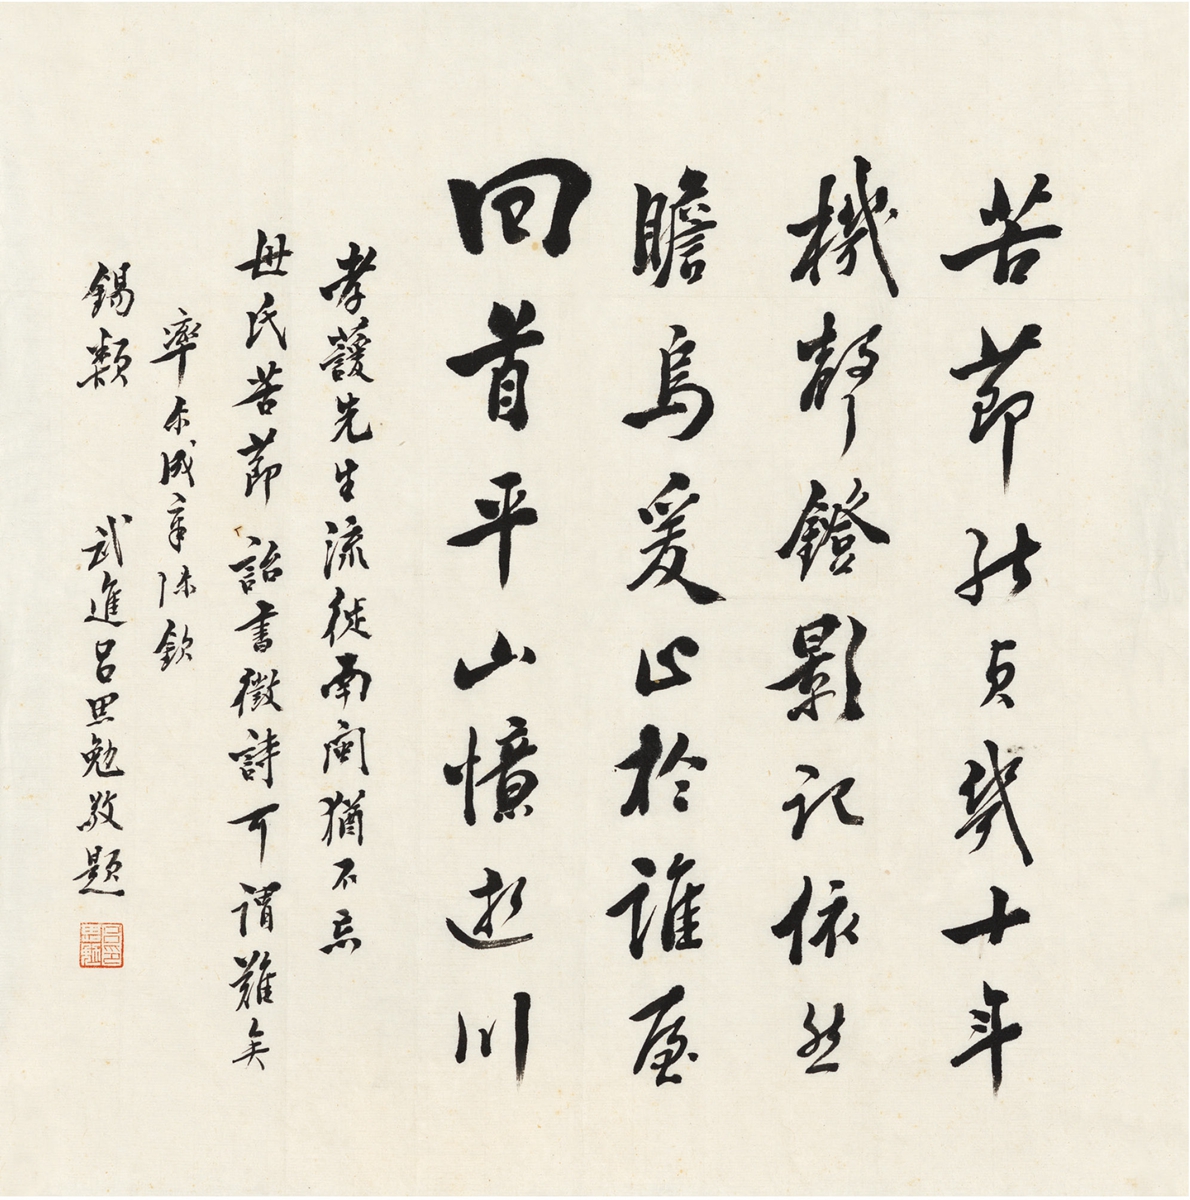 苦節能貞幾十年
機聲鐙影記依然
瞻烏爰止於誰屋
回首平山憤逝川
孝護先生流徙南閩猶不忘
母氏苦節詒書徵詩可謂難矣
率尔成章陈欽
錫類
武進呂思勉敬題